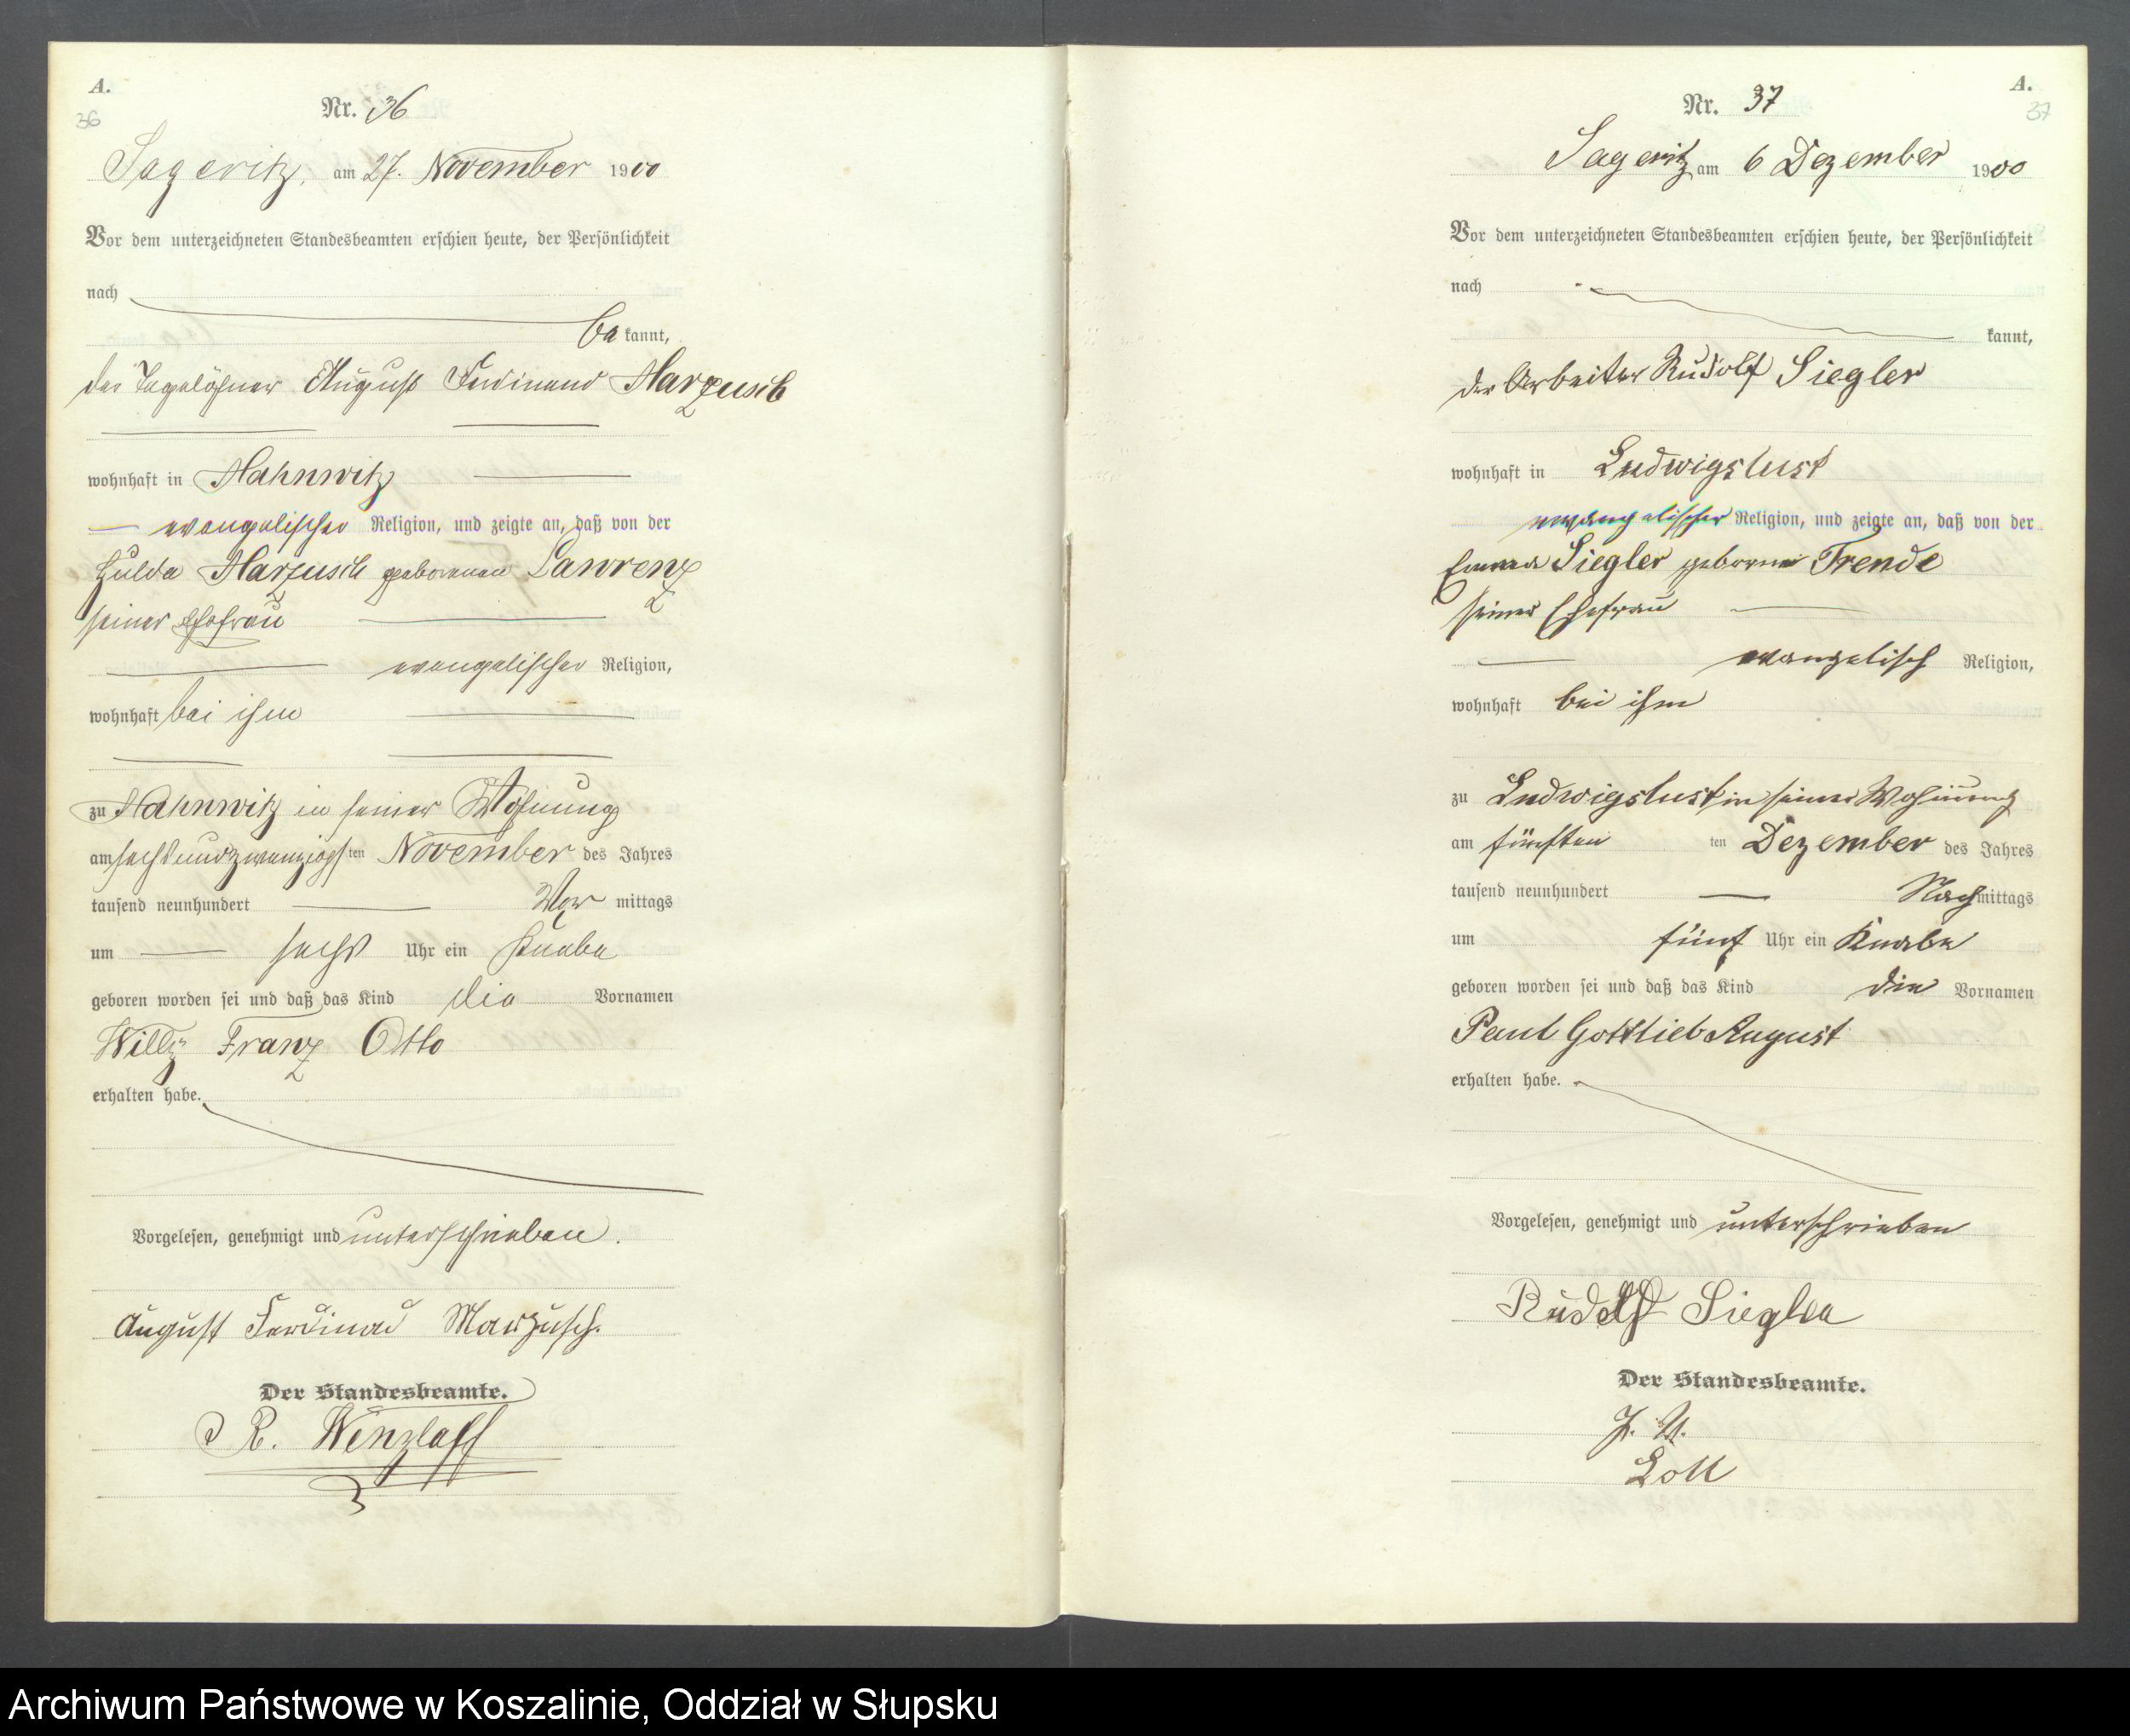 A.
36
Nr. 36
Sageritz, am 27. November 1900
Vor dem unterzeichneten Standesbeamten erschien heute, der Persönlichkeit
nach
be kannt,
der Tagelöhner August Ferdinand Marzusch
wohnhaft in Hahnwitz
evangelischer Religion, und zeigte an, daß von der
Hulda Marzusch geborenen Lawrenz
seiner Ehefrau
evangelischer Religion,
wohnhaft bei ihm
zu Hahnwitz in seiner Wohnung
am sechsundzwanzigsten November des Jahres
tausend neunhundert Vor mittags
um sechs Uhr ein Knabe
geboren worden sei und daß das Kind die Vornamen
Willy Franz Otto
erhalten habe.
Vorgelesen, genehmigt und unterschrieben.
August Ferdinad Marzusch.
Der Standesbeamte.
R. Wenzlaff
A.
37
Nr. 37
Sageritz am 6 Dezember 1900
Vor dem unterzeichneten Standesbeamten erschien heute, der Persönlichkeit
nach
kannt,
der Arbeiter Rudolf Siegler
wohnhaft in Ludwigslust
evangelischer Religion, und zeigte an, daß von der
Emma Siegler geborne Trende
seiner Ehefrau
evangelisch Religion,
wohnhaft bei ihm
zu Ludwigslust in seiner Wohnung
am fünften ten Dezember des Jahres
tausend neunhundert Nachmittags
um fünf Uhr ein Knabe
geboren worden sei und daß das Kind die Vornamen
Paul Gottlieb August
erhalten habe.
Vorgelesen, genehmigt und unterschrieben
Rudolf Siegler
Der Standesbeamte.
J. V.
Loll
Archiwum Państwowe w Koszalinie, Oddział w Słupsku